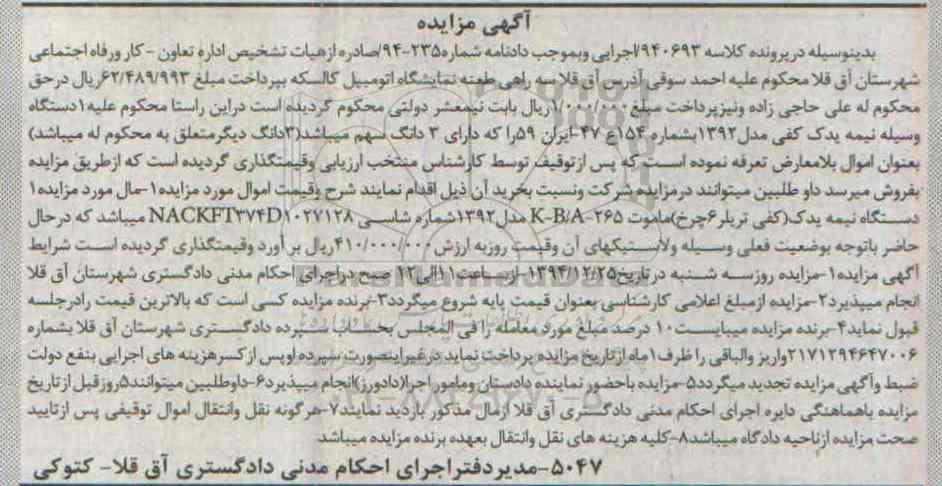 آگهی مزایده
بدینوسیله درپرونده کلاسه ۹۴۰۶۹۳/اجرایی وبموجب دادنامه شماره۲۳۵-۹۴/صادره ازهیات تشخیص اداره تعاون - کار ورفاه اجتماعی
شهرستان آق قلا محکوم علیه احمد سوقی آدرس آق قلا سه راهی طعنه نمایشگاه اتومبیل کالسکه بپرداخت مبلغ ۶۲/۴۸۹/۹۹۳ریال درحق
محکوم له علی حاجی زاده ونیزپرداخت مبلغ۱/۰۰۰/۰۰۰ریال بابت نیمعشر دولتی محکوم گردیده است دراین راستا محکوم علیه۱دستگاه
وسیله نیمه یدک کفی مدل۱۳۹۲بشماره۱۵۴ع ۴۷-ایران ۵۹را که دارای ۳ دانگ سهم میباشد(۳دانگ دیگرمتعلق به محکوم له میباشد)
بعنوان اموال بلامعارض تعرفه نموده است که پس ازتوقیف توسط کارشناس منتخب ارزیابی وقیمتگذاری گردیده است که ازطریق مزایده
بفروش میرسد داو طلبین میتوانند درمزایده شرکت ونسبت بخرید آن ذیل اقدام نمایند شرح وقیمت اموال مورد مزایده۱-مال مورد مزایده۱
دستگاه نیمه یدک(کفی تریلر۶چرخ)ماموت K-B/A-۲۶۵ مدل۱۳۹۲شماره شاسی NACKFT۳۷۴D۱۰۲۷۱۲۸ میباشد که درحال
حاضر باتوجه بوضعیت فعلی وسیله ولاستیکهای آن وقیمت روزبه ارزش۴۱۰/۰۰۰/۰۰۰ریال بر آورد وقیمتگذاری گردیده است شرایط
آگهی مزایده۱-مزایده روزسه شنبه در تاریخ۱۳۹۴/۱۲/۲۵-از ساعت۱۱الی۱۲ صبح دراجرای احکام مدنی دادگستری شهرستان آق قلا
انجام میپذیرد۲-مزایده ازمبلغ اعلامی کارشناسی بعنوان قیمت پایه شروع میگردد۳-برنده مزایده کسی است که بالاترین قیمت رادرجلسه
قبول نماید۴-برنده مزایده میبایست۱۰ درصد مبلغ مورد معامله را فی المجلس بحساب سپرده دادگستری شهرستان آق قلا بشماره
۲۱۷۱۲۹۴۶۴۷۰۰۶واریز والباقی را ظرف۱ماه ازتاریخ مزایده پرداخت نماید درغیراینصورت سپرده اوپس ازکسرهزینه های اجرایی بنفع دولت
ضبط وآگهی مزایده تجدید میگردد۵-مزایده باحضور نماینده دادستان ومامور اجرا(دادورز)انجام میپذیرد۶-داوطلبین میتوانند۵روزقبل ازتاریخ
مزایده باهماهنگی دایره اجرای احکام مدنی دادگستری آق قلا ازمال مذکور بازدید نمایند۷-هرگونه نقل وانتقال اموال توقیفی پس ازتایید
صحت مزایده ازناحیه دادگاه میباشد۸-کلیه هزینه های نقل وانتقال بعهده برنده مزایده میباشد
۵۰۴۷-مدیردفتراجرای احکام مدنی دادگستری آق قلا- کتوکی